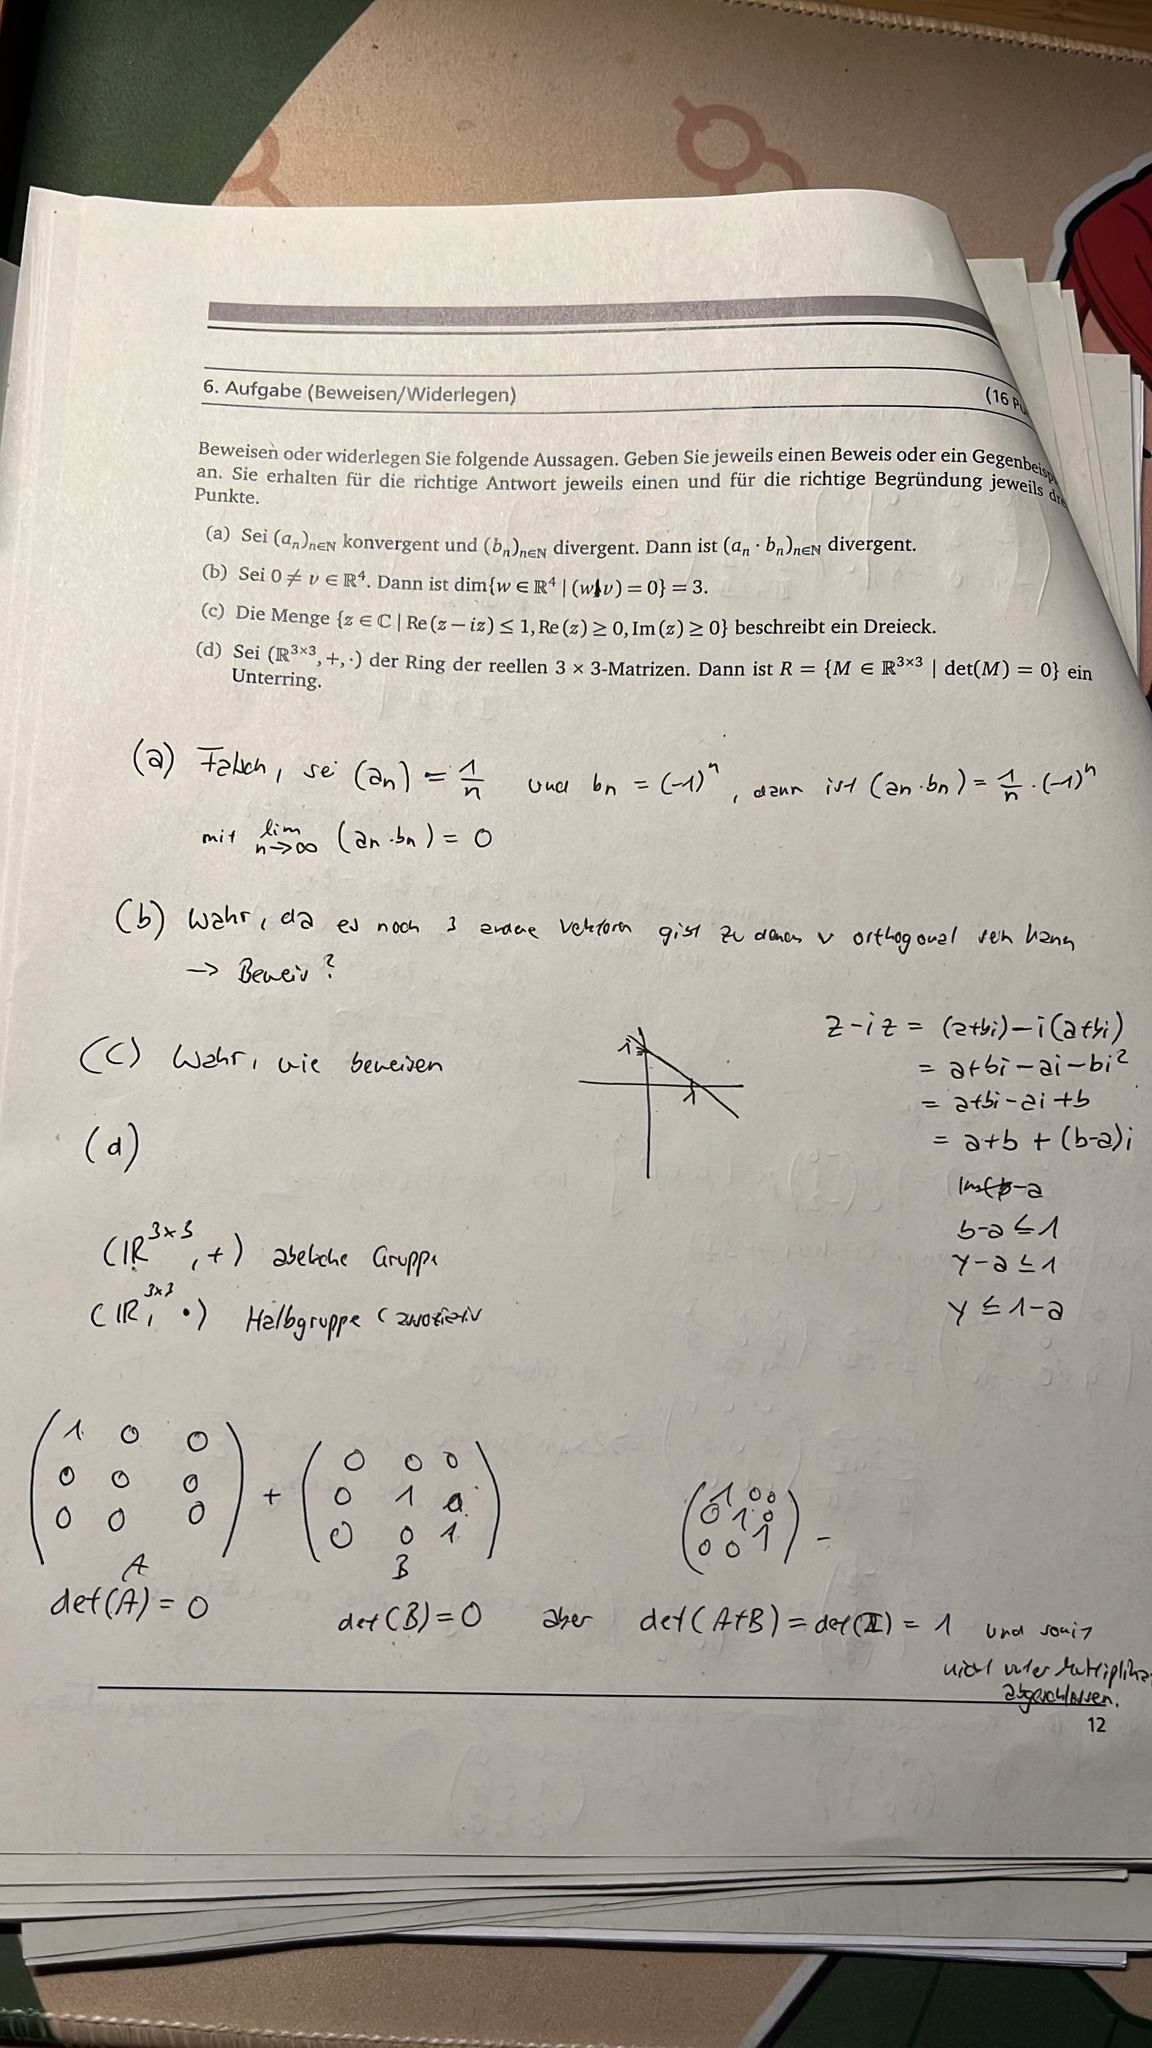 6. Aufgabe (Beweisen/Widerlegen)
(16
Beweisen oder widerlegen Sie folgende Aussagen. Geben Sie jeweils einen Beweis oder ein Gegenbeisp
an. Sie erhalten für die richtige Antwort jeweils einen und für die richtige Begründung jeweils dre
Punkte.
(a) Sei (aₙ)ₙ∈ℕ konvergent und (bₙ)ₙ∈ℕ divergent. Dann ist (aₙ · bₙ)ₙ∈ℕ divergent.
(b) Sei 0 ≠ v ∈ ℝ⁴. Dann ist dim{w ∈ ℝ⁴ | (w|v) = 0} = 3.
(c) Die Menge {z ∈ ℂ | Re(z − iz) ≤ 1, Re(z) ≥ 0, Im(z) ≥ 0} beschreibt ein Dreieck.
(d) Sei (ℝ³ˣ³, +, ·) der Ring der reellen 3 × 3-Matrizen. Dann ist R = {M ∈ ℝ³ˣ³ | det(M) = 0} ein
Unterring.
(a) Falsch, sei (an) = 1/n und bn = (-1)ⁿ, dann ist (an·bn) = 1/n · (-1)ⁿ
mit lim n→∞ (an·bn) = 0
(b) Wahr, da es noch 3 andere Vektoren gibt zu denen v orthogonal sein kann
→ Beweis?
(c) Wahr, wie beweisen
1
1
z-iz = (a+bi)-i(a+bi)
= a+bi-ai-bi²
= a+bi-ai+b
= a+b + (b-a)i
b-a ≤ 1
y-a ≤ 1
y ≤ 1-a
(d)
(ℝ³ˣ³, +) abelsche Gruppe
(ℝ³ˣ³, ·) Halbgruppe (assoziativ
1 0 0
0 0 0
0 0 0
A
+
0 0 0
0 1 0
0 0 1
B
1 0 0
0 1 0
0 0 1
=
det(A) = 0 det(B) = 0 aber det(A+B) = det(I) = 1 und somit
nicht unter Multiplika
abgeschlossen.
12